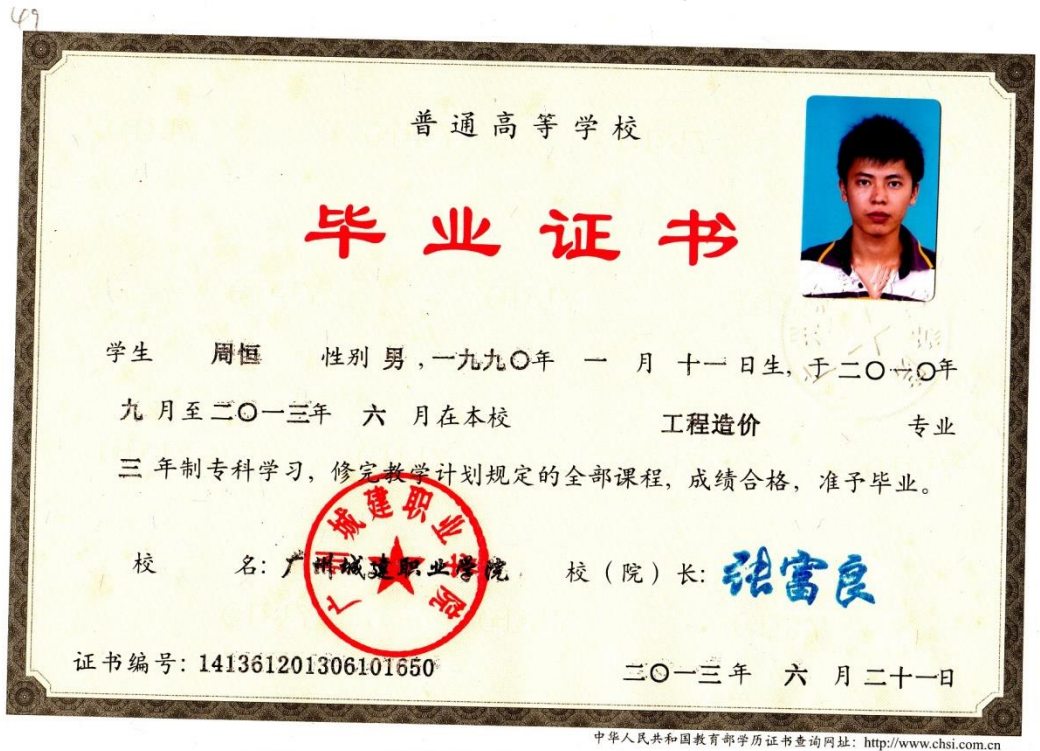 49
普通高等学校
毕业证书
学生 周恒 性别 男，一九九〇年 一 月 十一 日生，于 二〇一〇年
九 月至 二〇一三年 六 月在本校 工程造价 专业
三 年制专科学习，修完教学计划规定的全部课程，成绩合格，准予毕业。
广州城建职业学院
校 名：广州城建职业学院 校（院）长：张富良
证书编号：141361201306101650 二〇一三年 六 月 二十一日
中华人民共和国教育部学历证书查询网址：http://www.chsi.com.cn